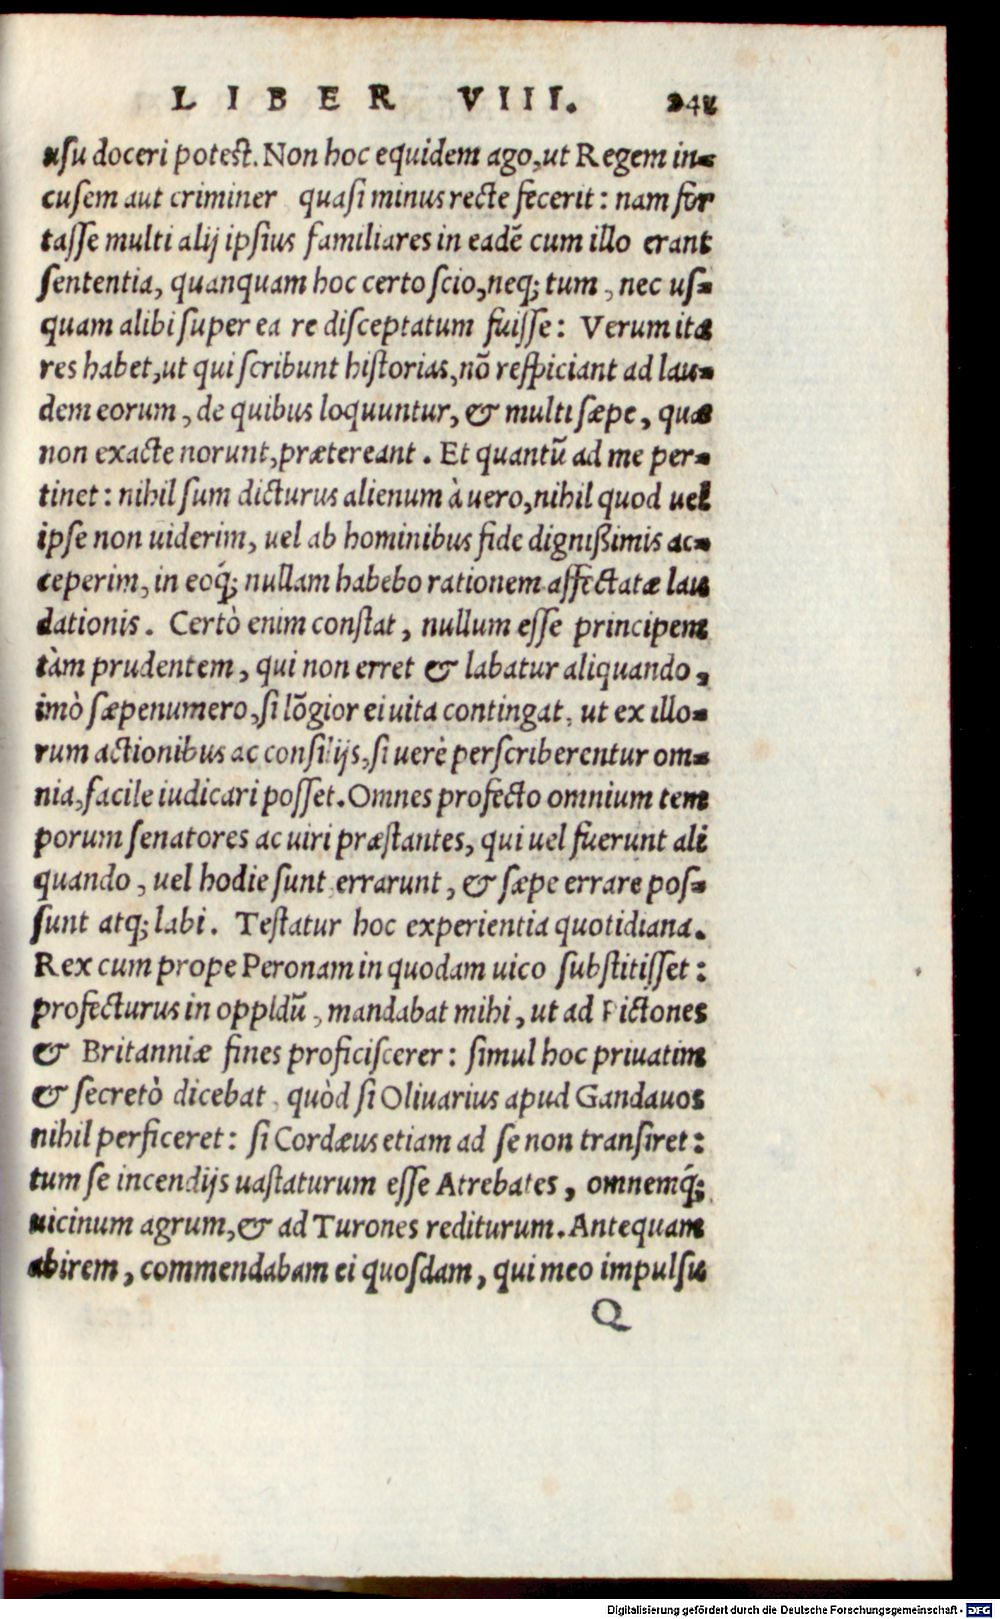 LIBER VIII. 241
uſu doceri poteſt. Non hoc equidem ago, ut Regem in-
cuſem aut criminer quaſi minus recte fecerit: nam for
taſſe multi alij ipſius familiares in eadē cum illo erant
ſententia, quanquam hoc certo ſcio, neq; tum, nec uſ-
quam alibi ſuper ea re diſceptatum fuiſſe: Verum ita
res habet, ut qui ſcribunt hiſtorias, nō reſpiciant ad lau-
dem eorum, de quibus loquuntur, & multi ſæpe, quæ
non exacte norunt, prætereant. Et quantū ad me per-
tinet: nihil ſum dicturus alienum à uero, nihil quod uel
ipſe non uiderim, uel ab hominibus fide digniſſimis ac-
ceperim, in eoq́; nullam habebo rationem affectatæ lau
dationis. Certò enim conſtat, nullum eſſe principem
tàm prudentem, qui non erret & labatur aliquando,
imò ſæpenumero, ſi lōgior ei uita contingat, ut ex illo-
rum actionibus ac conſilijs, ſi uerè perſcriberentur om-
nia, facile iudicari poſſet. Omnes profecto omnium tem
porum ſenatores ac uiri præſtantes, qui uel fuerunt ali
quando, uel hodie ſunt errarunt, & ſæpe errare poſ-
ſunt atq; labi. Teſtatur hoc experientia quotidiana.
Rex cum prope Peronam in quodam uico ſubſtitiſſet:
profecturus in oppidū, mandabat mihi, ut ad Pictones
& Britanniæ fines proficiſcerer: ſimul hoc priuatim
& ſecretò dicebat, quòd ſi Oliuarius apud Gandauos
nihil perficeret: ſi Cordæus etiam ad ſe non tranſiret:
tum ſe incendijs uaſtaturum eſſe Atrebates, omnemq́;
uicinum agrum, & ad Turones rediturum. Antequam
abirem, commendabam ei quoſdam, qui meo impulſu
Q
Digitalisierung gefördert durch die Deutsche Forschungsgemeinschaft - DFG